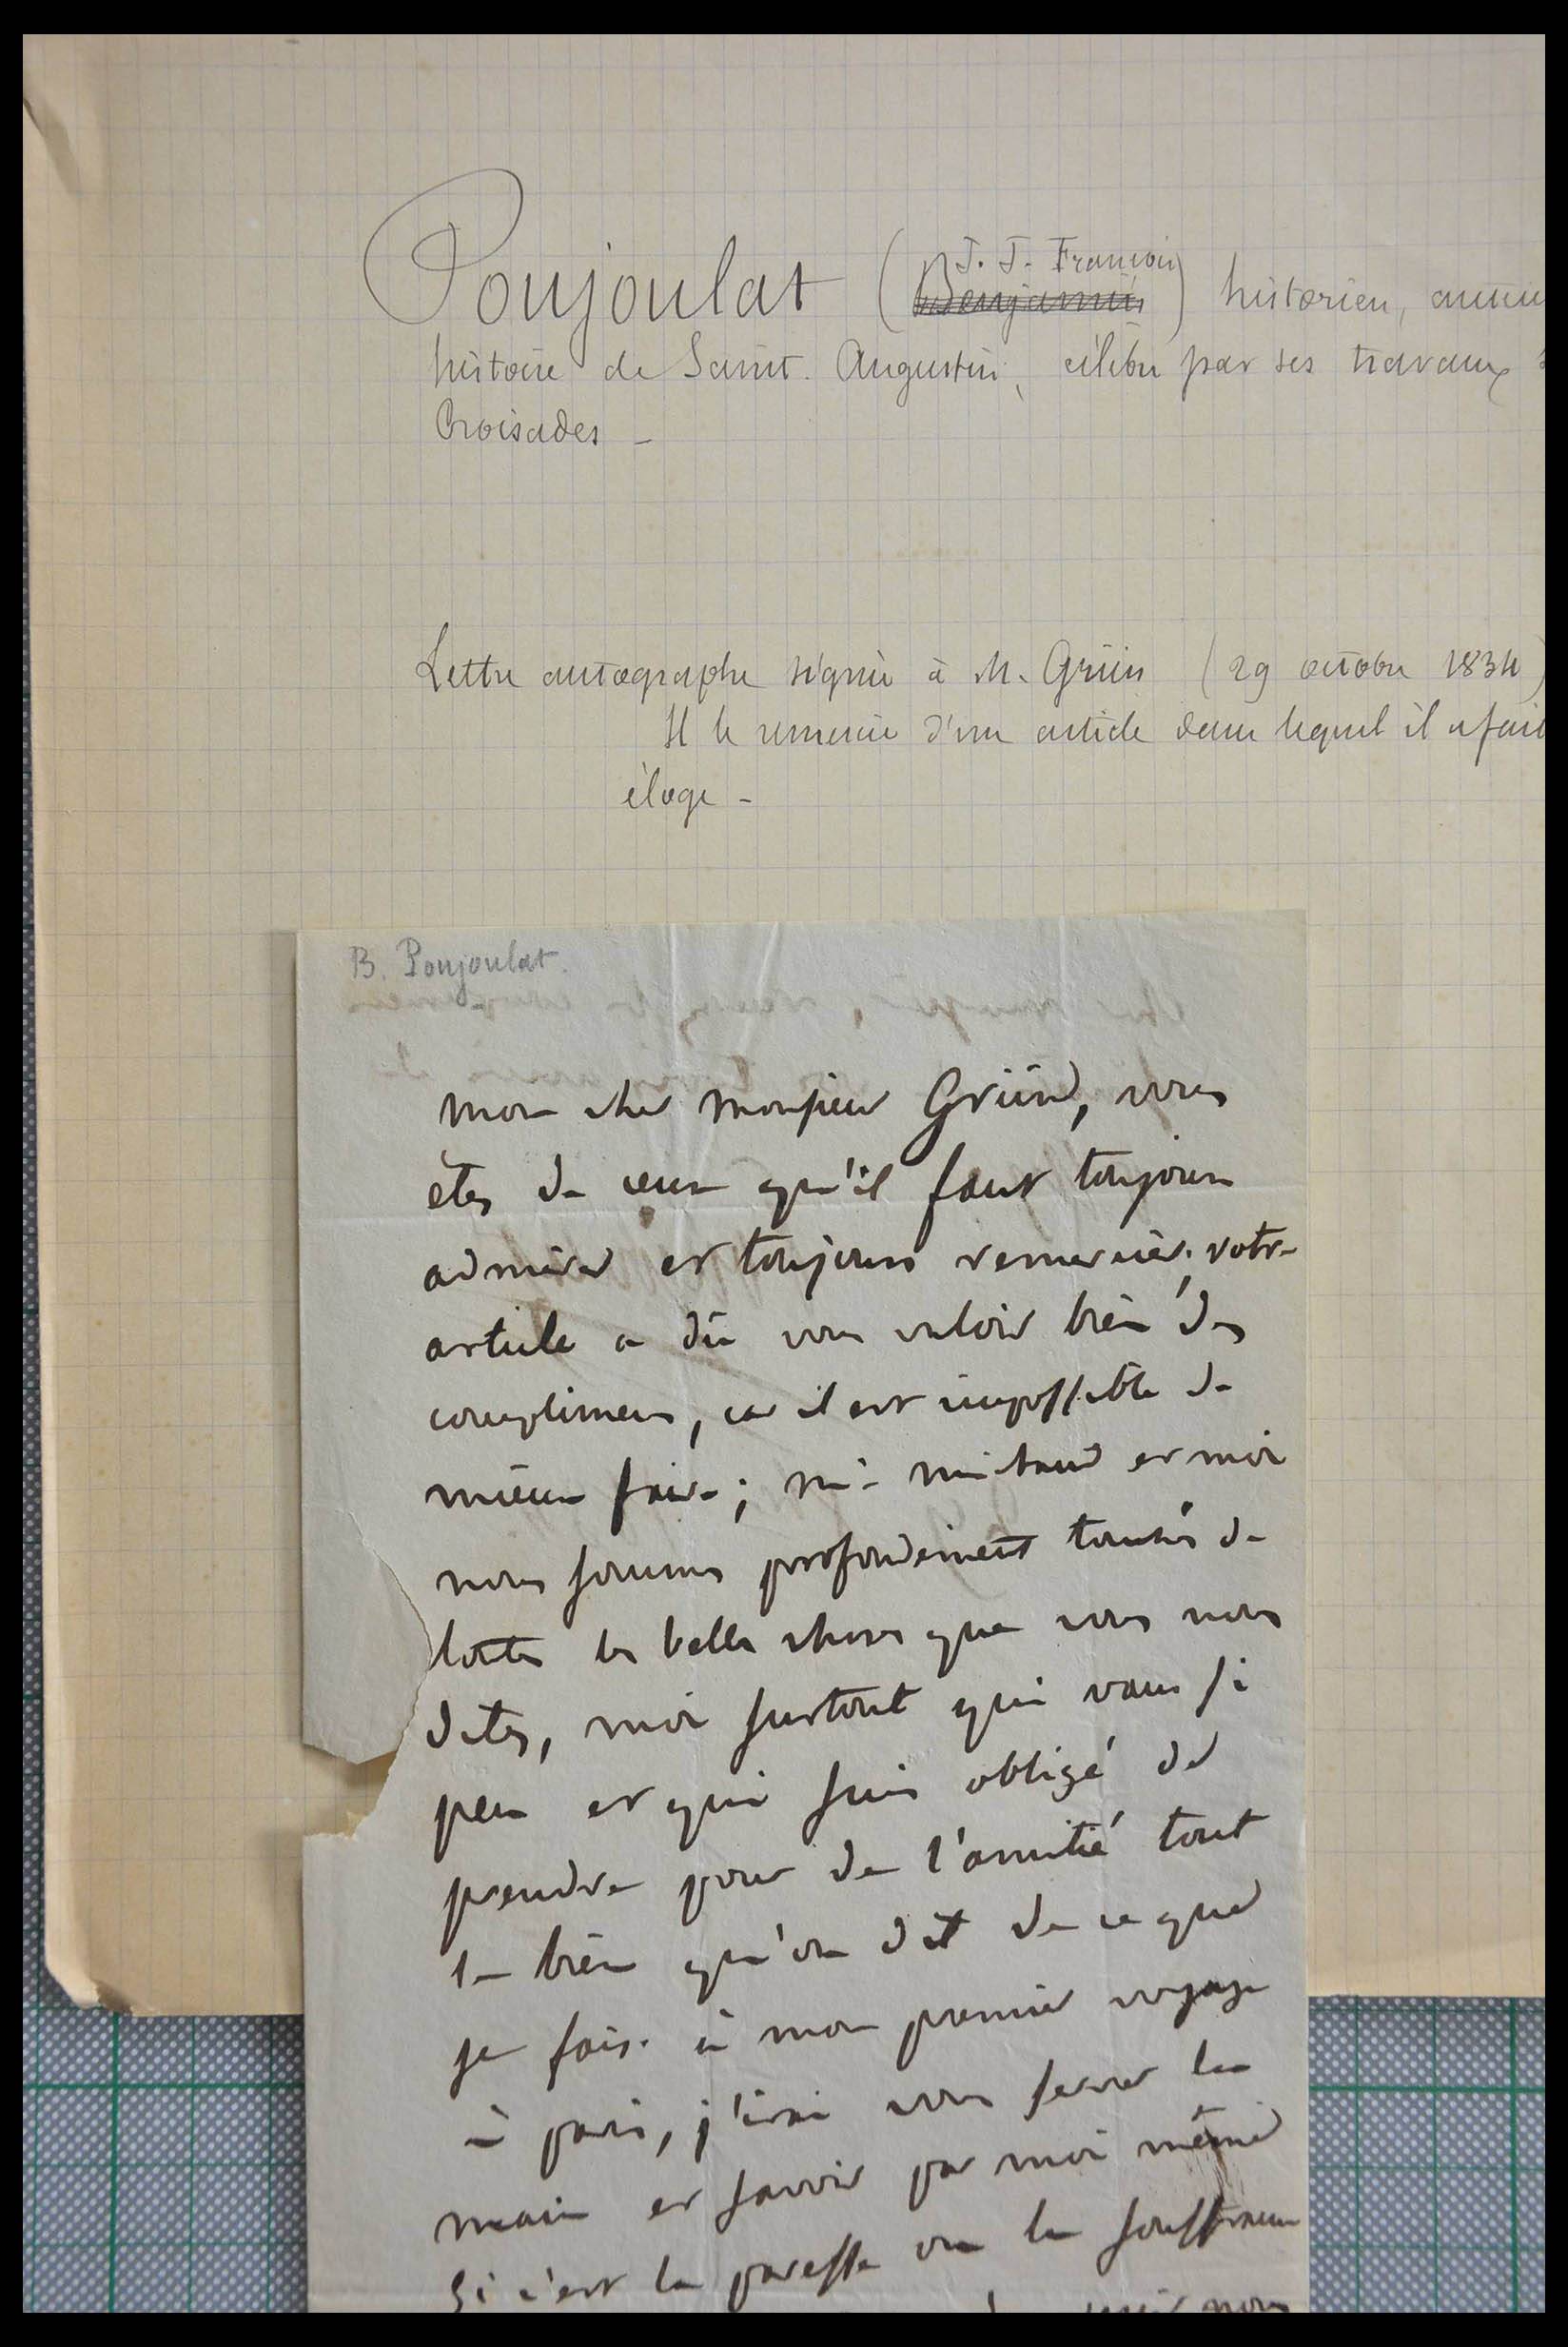 Poujoulat (Benjamin J. J. François) historien,
histoire de Saint Augustin, célèbre par ses travaux
Croisades -
Lettre autographe signée à M. Grün (29 octobre 1834)
Il le remercie d'un article dans lequel il a fait
éloge -
B. Poujoulat.
mon cher monsieur Grün, vous
êtes de ceux qu'il faut toujours
admirer et toujours remercier. votre
article a dû vous valoir bien des
complimens, car il est impossible de
mieux faire; mr michaud et moi
nous sommes profondément touchés de
toutes les belles choses que vous nous
dites, moi surtout qui vaux si
peu et qui suis obligé de
prendre pour de l'amitié tout
le bien qu'on dit de ce que
je fais. à mon premier voyage
à paris, j'irai vous serrer la
main et savoir par moi même
si c'est la paresse ou la souffrance
nous